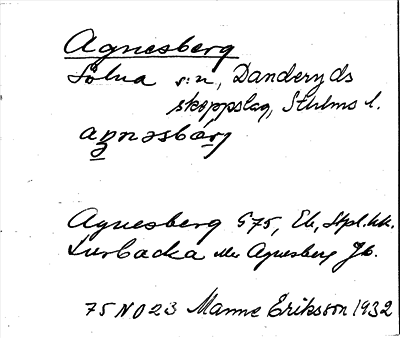 Agnesberg
Solna s:n, Danderyds
skeppslag, Sthlms l.
aŋnəsbárj
Agnesberg G75, Ek, Stpl.
Lurbacka eller Agnesberg Jb.
75 NO 23 Manne Eriksson 1932